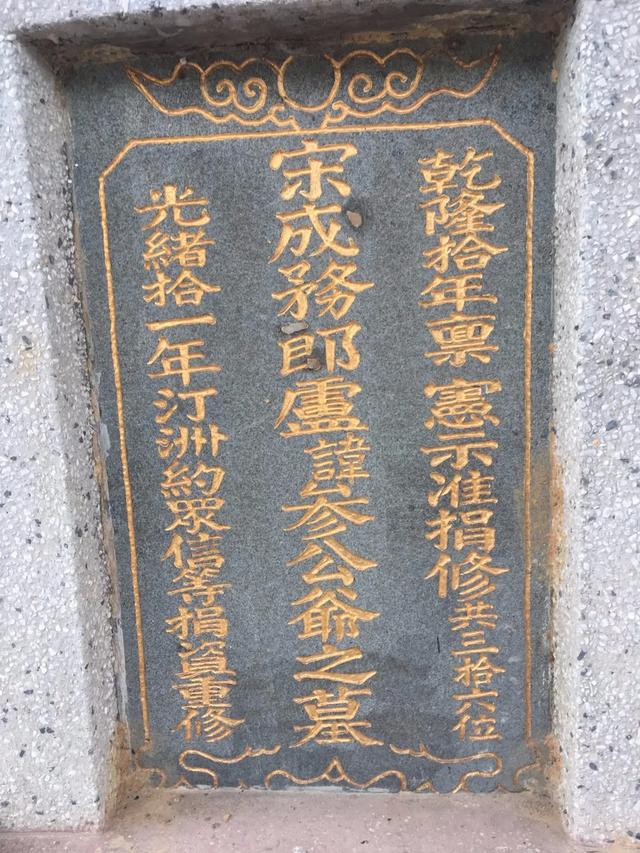 乾隆拾年禀憲示准捐修共三拾六位
宋成務郎盧諱參公爺之墓
光緒拾一年汀洲約眾信等捐資重修